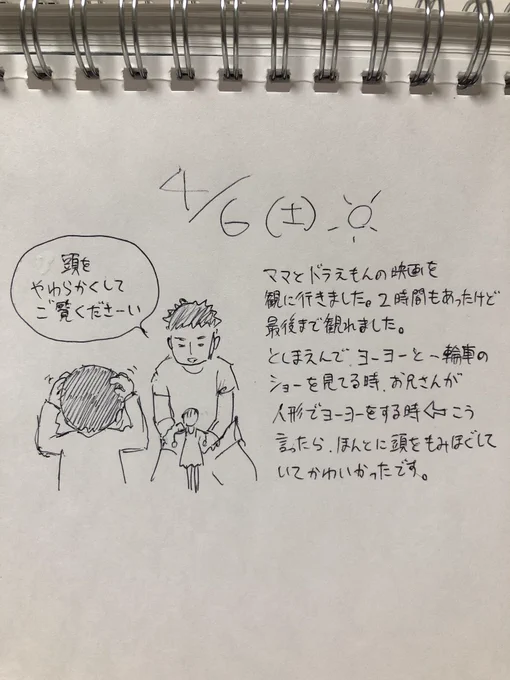 4/6(土)
頭を
やわらかくして
ご覧くださーい
ママとドラえもんの映画を
観に行きました。2時間もあったけど
最後まで観れました。
としまえんで、ヨーヨーと一輪車の
ショーを見てる時、お兄さんが
人形でヨーヨーをする時⇐こう
言ったら、ほんとに頭をもみほぐして
いてかわいかったです。